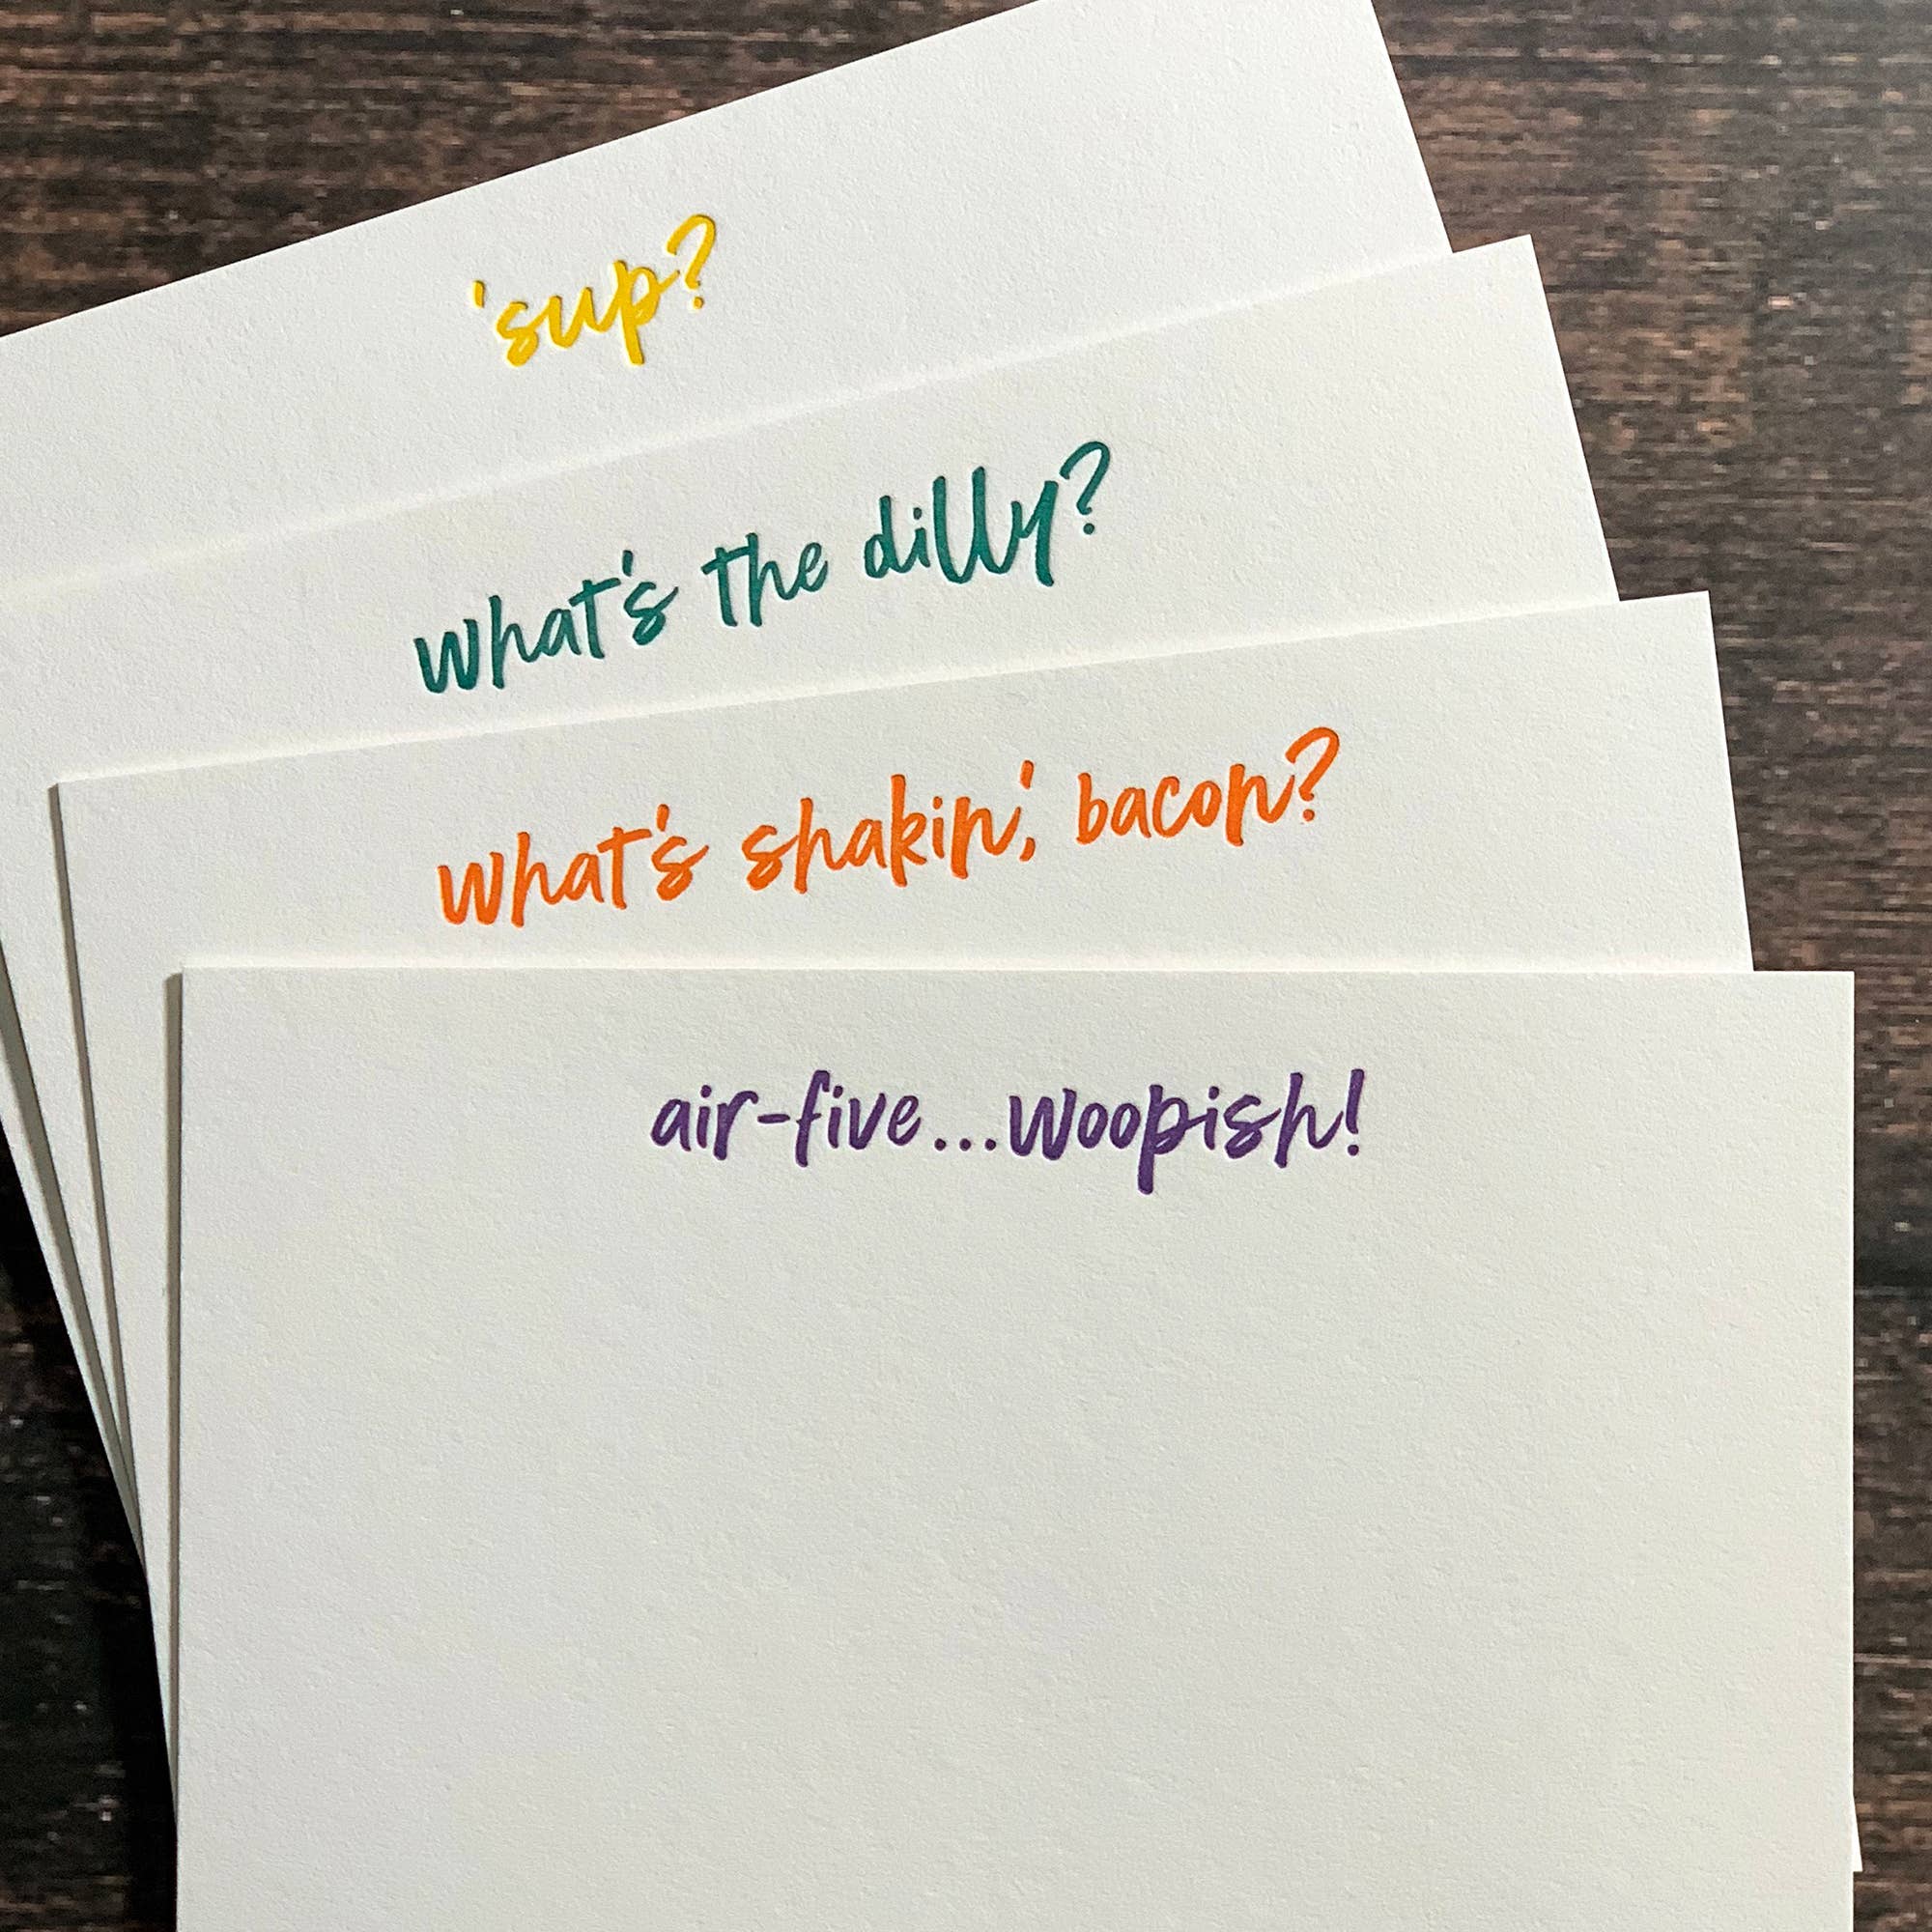 'sup?
what's the dilly?
what's shakin', bacon?
air-five...woopish!